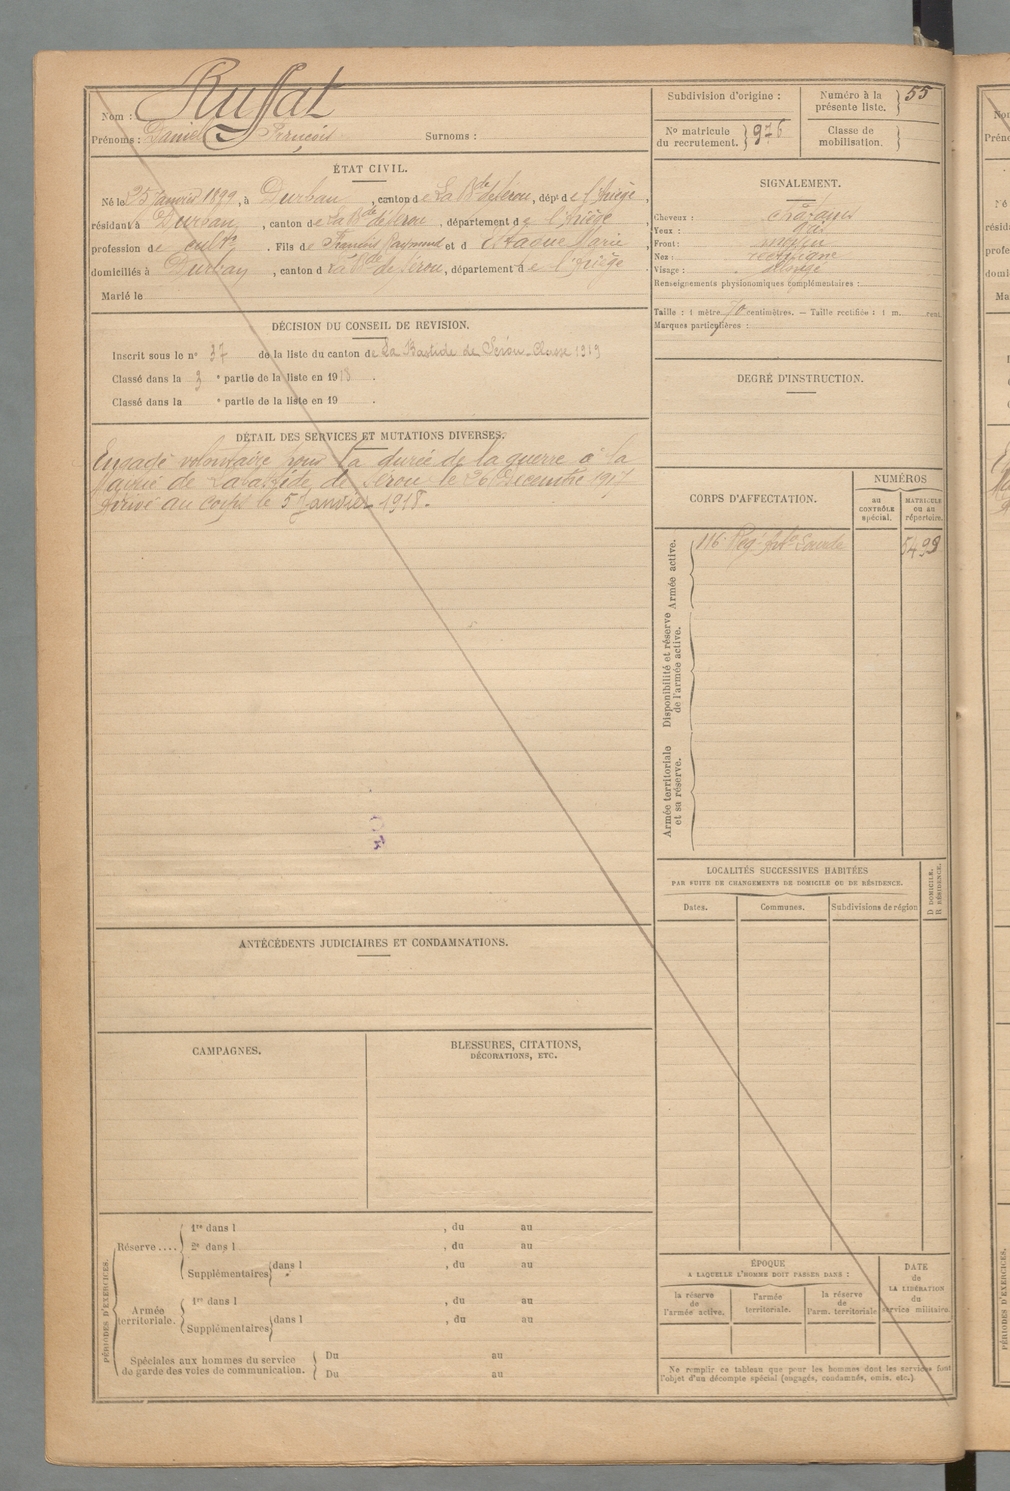 Nom : Ruffat
Prénoms : Daniel François Surnoms :
Subdivision d'origine :
Numéro à la présente liste. 55
No matricule du recrutement. 976
Classe de mobilisation.
ÉTAT CIVIL.
Né le 25 Janvier 1899, à Durban, canton de La Bde de Serou, dépt de l'Ariège,
résidant à Durban, canton de La Bde de Serou, département de l'Ariège
profession de cultr. Fils de François Raymond et d Marie
domiciliés à Durban, canton d La Bde de Serou, département de l'Ariège
Marié le
SIGNALEMENT.
Cheveux : châtains
Yeux : gris
Front : moyen
Nez : rectiligne
Visage : allongé
Renseignements physionomiques complémentaires :
Taille : 1 mètre 70 centimètres. — Taille rectifiée : 1 m. cent.
Marques particulières :
DÉCISION DU CONSEIL DE REVISION.
Inscrit sous le n° 37 de la liste du canton de La Bastide de Serou - Classe 1919
Classé dans la 3 e partie de la liste en 1918.
Classé dans la e partie de la liste en 19 .
DEGRÉ D'INSTRUCTION.
DÉTAIL DES SERVICES ET MUTATIONS DIVERSES.
Engagé volontaire pour la durée de la guerre à la
Mairie de Labastide de Sérou le 26 Décembre 1917
Arrivé au corps le 5 Janvier 1918.
CORPS D'AFFECTATION.
NUMÉROS
au CONTRÔLE spécial.
MATRICULE ou au répertoire.
Armée active.
116 Reg.
5499
Disponibilité et réserve de l'armée active.
Armée territoriale et sa réserve.
LOCALITÉS SUCCESSIVES HABITÉES
PAR SUITE DE CHANGEMENTS DE DOMICILE OU DE RÉSIDENCE.
Dates. Communes. Subdivisions de région
D DOMICILE.
R RÉSIDENCE.
ANTÉCÉDENTS JUDICIAIRES ET CONDAMNATIONS.
CAMPAGNES.
BLESSURES, CITATIONS,
DÉCORATIONS, ETC.
PÉRIODES D'EXERCICES.
Réserve ....
1re dans l , du au
2e dans l , du au
Supplémentaires dans l , du au
Armée territoriale.
1re dans l , du au
Supplémentaires dans l , du au
Spéciales aux hommes du service
de garde des voies de communication.
Du au
Du au
ÉPOQUE
A LAQUELLE L'HOMME DOIT PASSER DANS :
la réserve de l'armée active.
l'armée territoriale.
la réserve de l'arm. territoriale
DATE de LA LIBÉRATION du service militaire.
Ne remplir ce tableau que pour les hommes dont les services font
l'objet d'un décompte spécial (engagés, condamnés, omis, etc.)